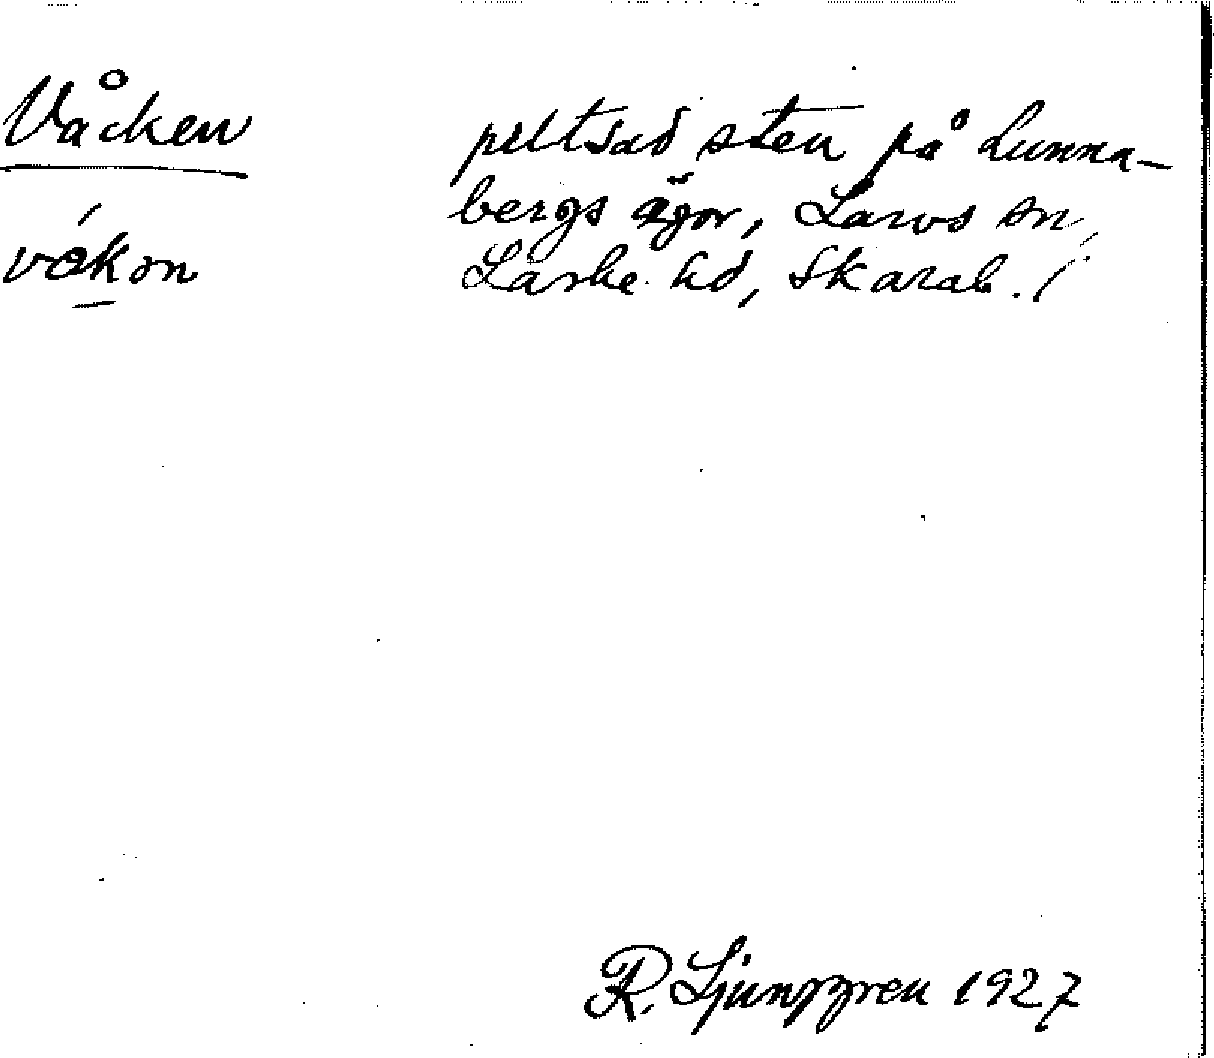 Våcken
våkon
peltsad sten på Lunna-
bergs ägor, Larvs sn,
Laske hd, Skarab. l
R. Ljunggren 1927